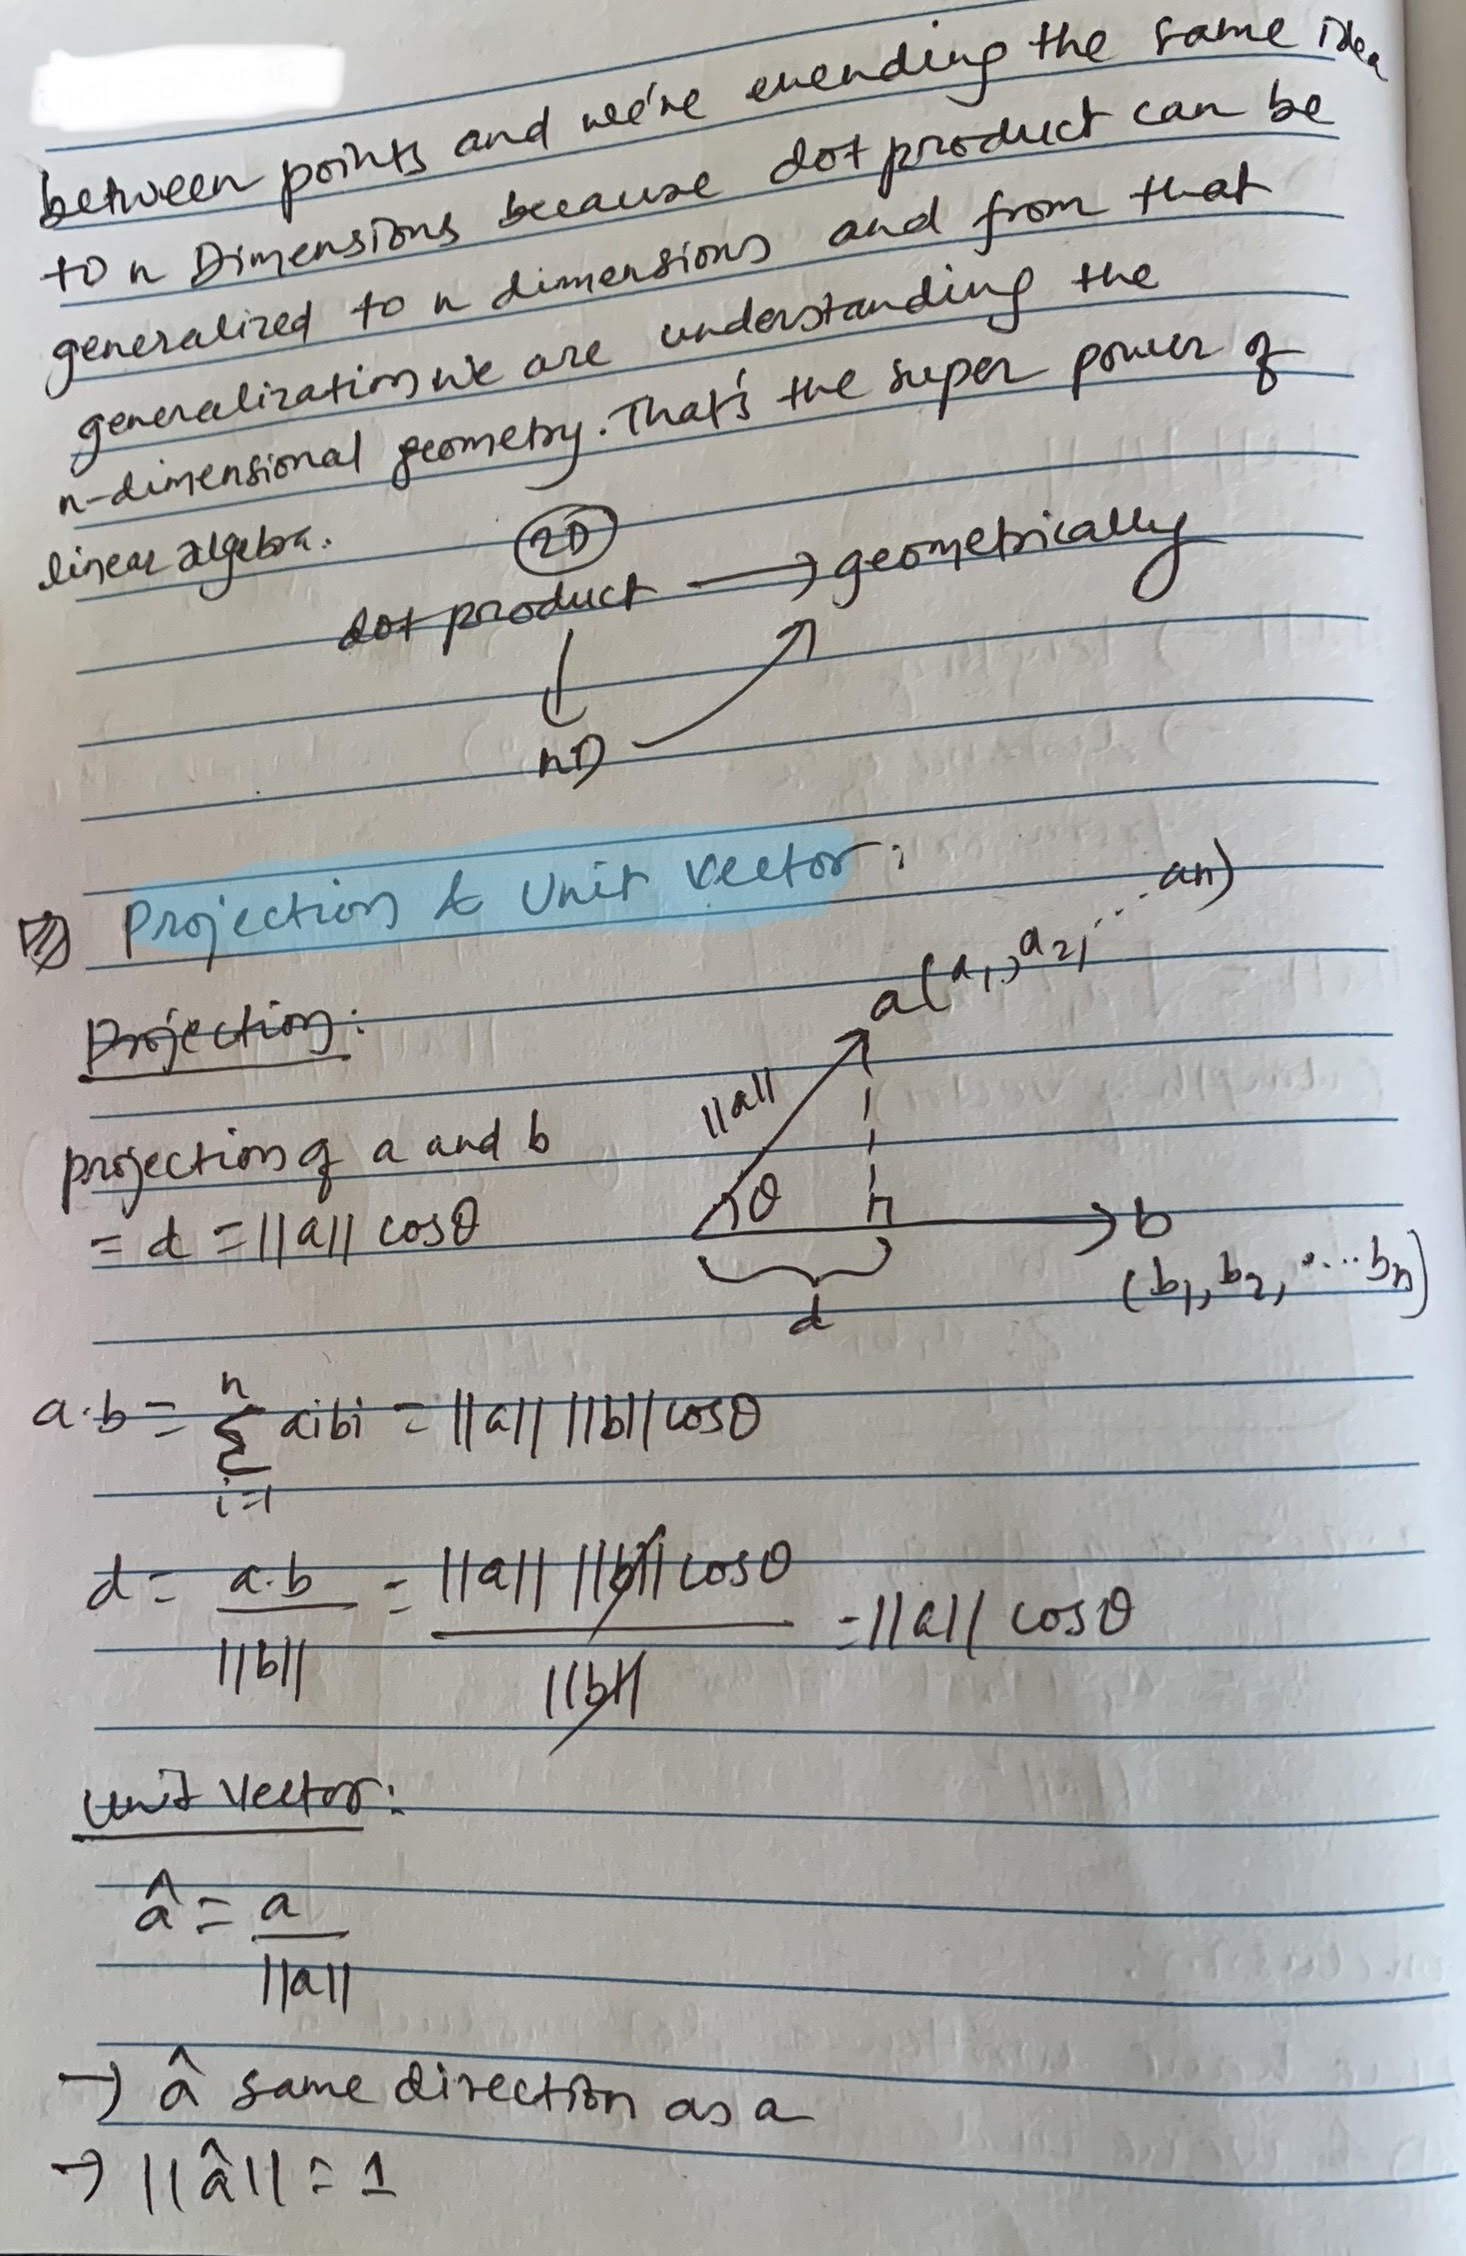 between points and we're exending the same idea
to n Dimensions because dot product can be
generalized to n dimensions and from that
generalization we are understanding the
n-dimensional geometry. That's the super power of
linear algebra.
2D
dot product → geometrically
↓
nD
Projection & Unit Vector:
Projection:
a(a1, a2, ... an)
||a||
projection of a and b
= d = ||a|| cosθ
θ
b
(b1, b2, .... bn)
d
a.b = n Σ i=1 aibi = ||a|| ||b|| cosθ
d = a.b / ||b|| = ||a|| ||b|| cosθ / ||b|| = ||a|| cosθ
Unit Vector:
â = a / ||a||
→ â same direction as a
→ ||â|| = 1